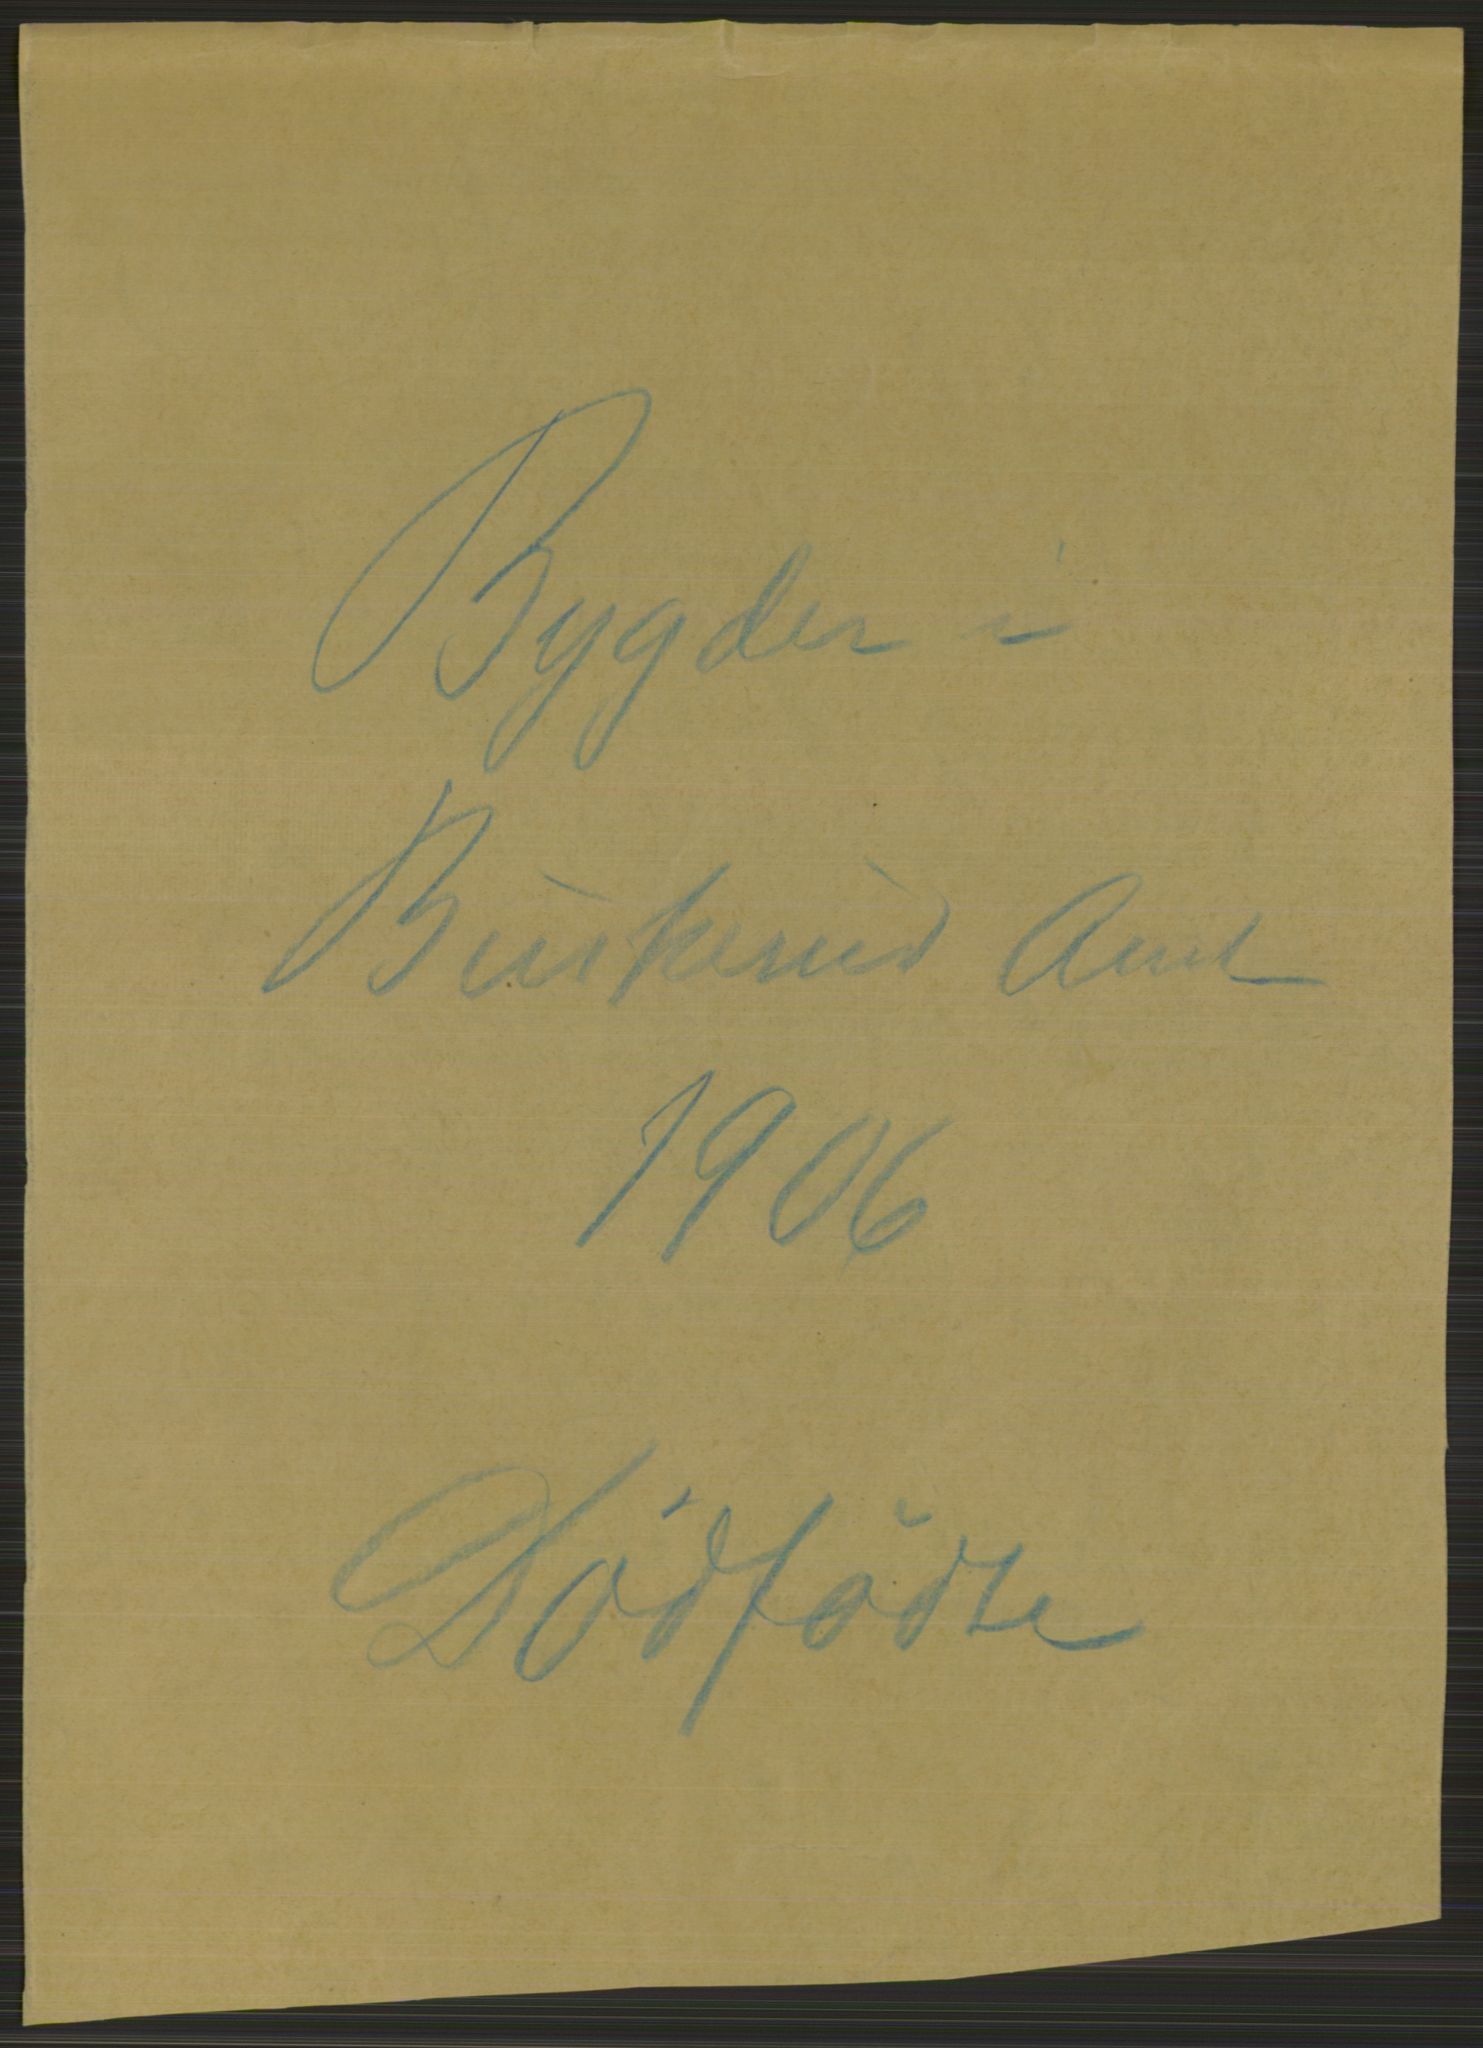 Bygder i
Buskerud Amt
1906
Dødfødte